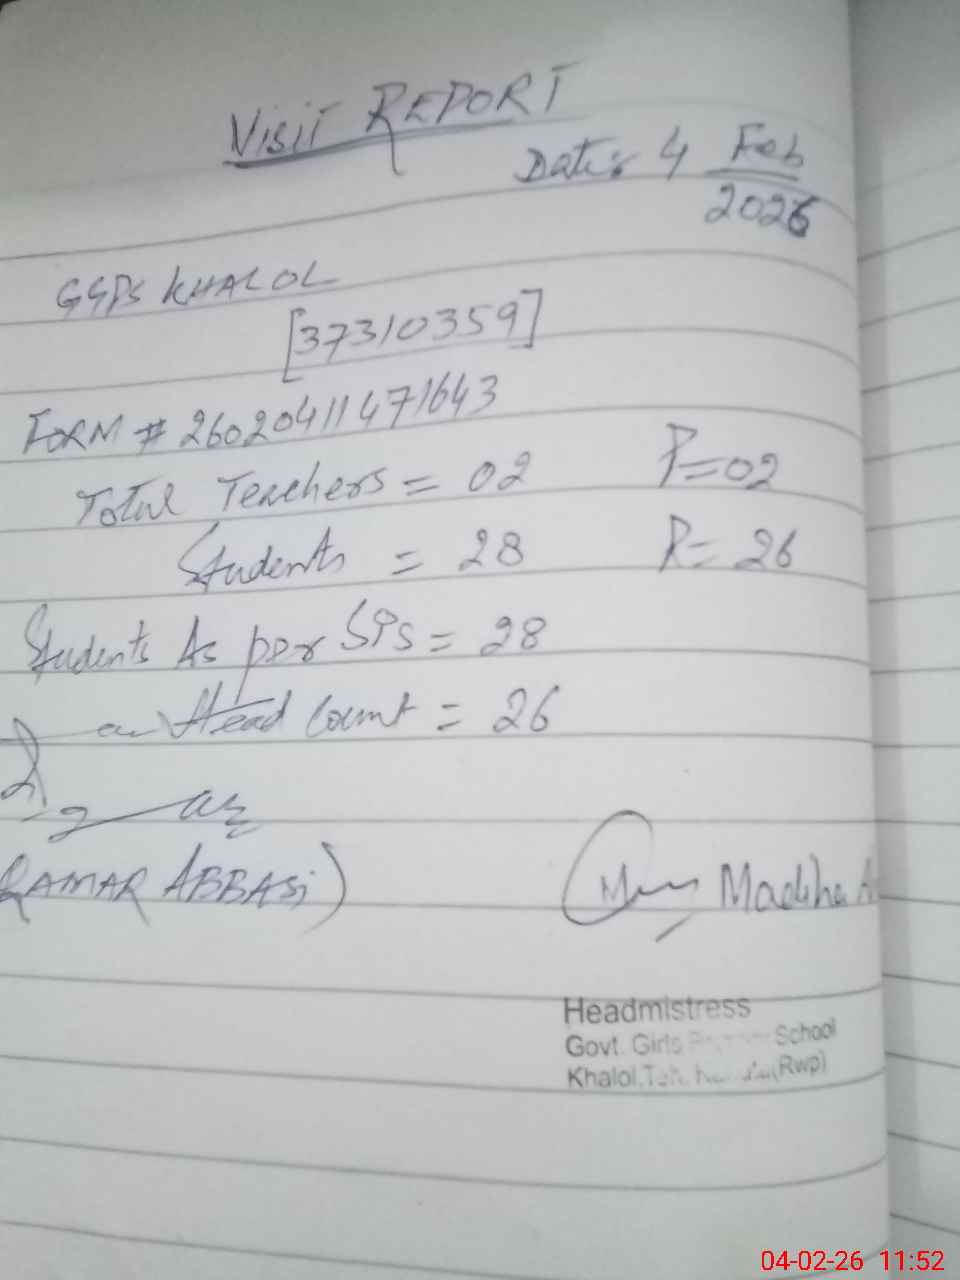 VISIT REPORT
Date: 4 Feb
2026
GGPS KHALOL
[37310359]
FORM # 26020411471643
Total Teachers = 02 P=02
Students = 28 P= 26
Students As per SPs = 28
Head Count = 26
QAMAR ABBASi)
Madiha
Headmistress
Govt. Girls School
Khalol. (Rwp)
04-02-26 11:52